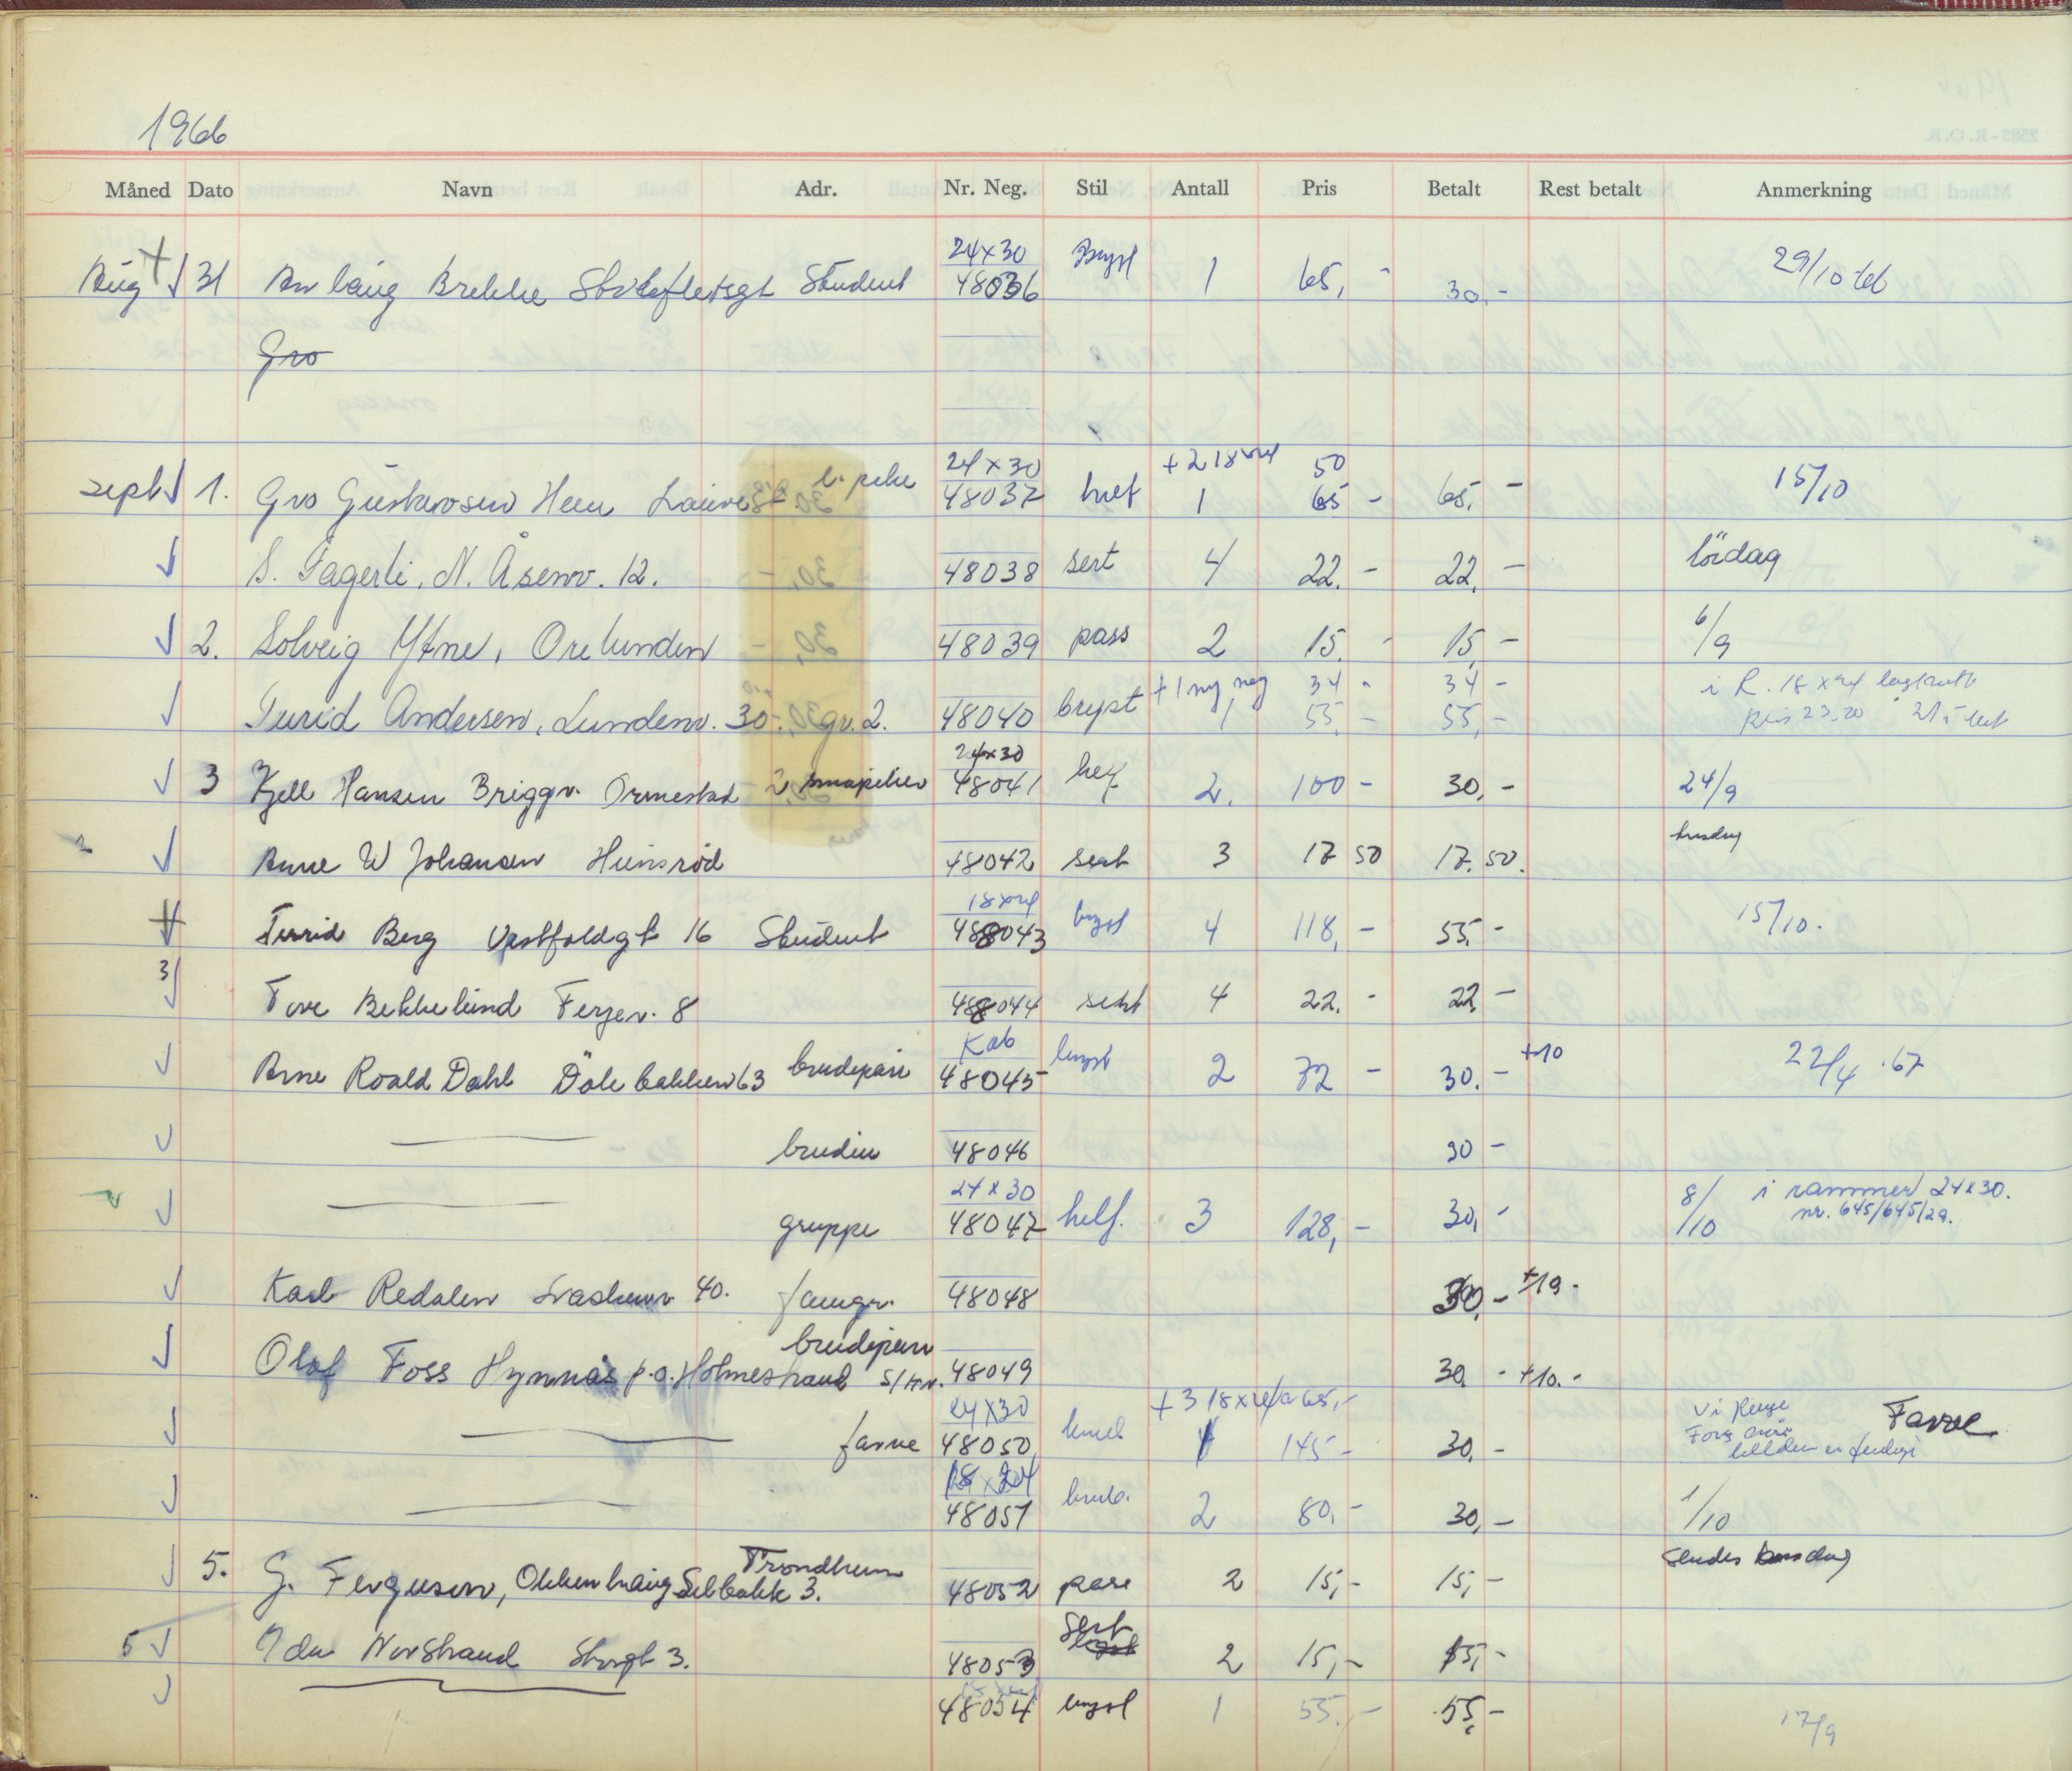 1966
Måned Dato Navn Adr. Nr. Neg. Stil Antall Pris Betalt Rest betalt Anmerkning
24x30
Aug 31 Brekke Student 48036 Bryst 1 65,- 30,- 29/10
Gro
24x30 50
sept 1. Gro 48037 helf 1 65 - 65,- 15/10
S. Fagerli, N. Åsenv. 12. 48038 sert 4 22.- 22.- lördag
2. Solveig Ytne, Orelunden 48039 pass 2 15.- 15,- 6/9
+ 1 ny neg 34 - 34 - i R. 18 x 24
Turid Andersen, Lundenv. 30. gr. 2. 48040 bryst 1 55,- 55,-
24x30
3 Kjell Hansen Briggv. Ormestad 2 48041 helf 2. 100 - 30,- 24/9
Anne W Johansen 48042 sert 3 17 50 17.50.
18x24
Turid Berg Vestfoldgt 16 Student 48043 bryst 4 118,- 55,- 15/10.
3
Tove Bekkelund 8 48044 sert 4 22.- 22,-
Kab +10
Arne Roald Dahl 63 brudepar 48045 bryst 2 72 - 30.- 22/4 .67
bruden 48046 30 -
24x30 i rammer 24x30.
gruppe 48047 helf. 3 128,- 30,- 8/10 nr. 645/645/29.
Redalen 40. famgr. 48048 30,- +19.-
brudepar
Olaf Foss p.o. Holmestrand 48049 30. - +10.-
24x30 + 3 18x24 a 65,- Farve
farve 48050 145 - 30,-
18x24
48051 2 80,- 30,- 1/10
Trondheim sendes
5. G. Ferguson, 3. 48052 pass 2 15,- 15,-
Sert
5 Ida Norstrand Storgt 3. 48053 2 15,- 15,-
48054 bryst 1 55,- 55,- 17/9